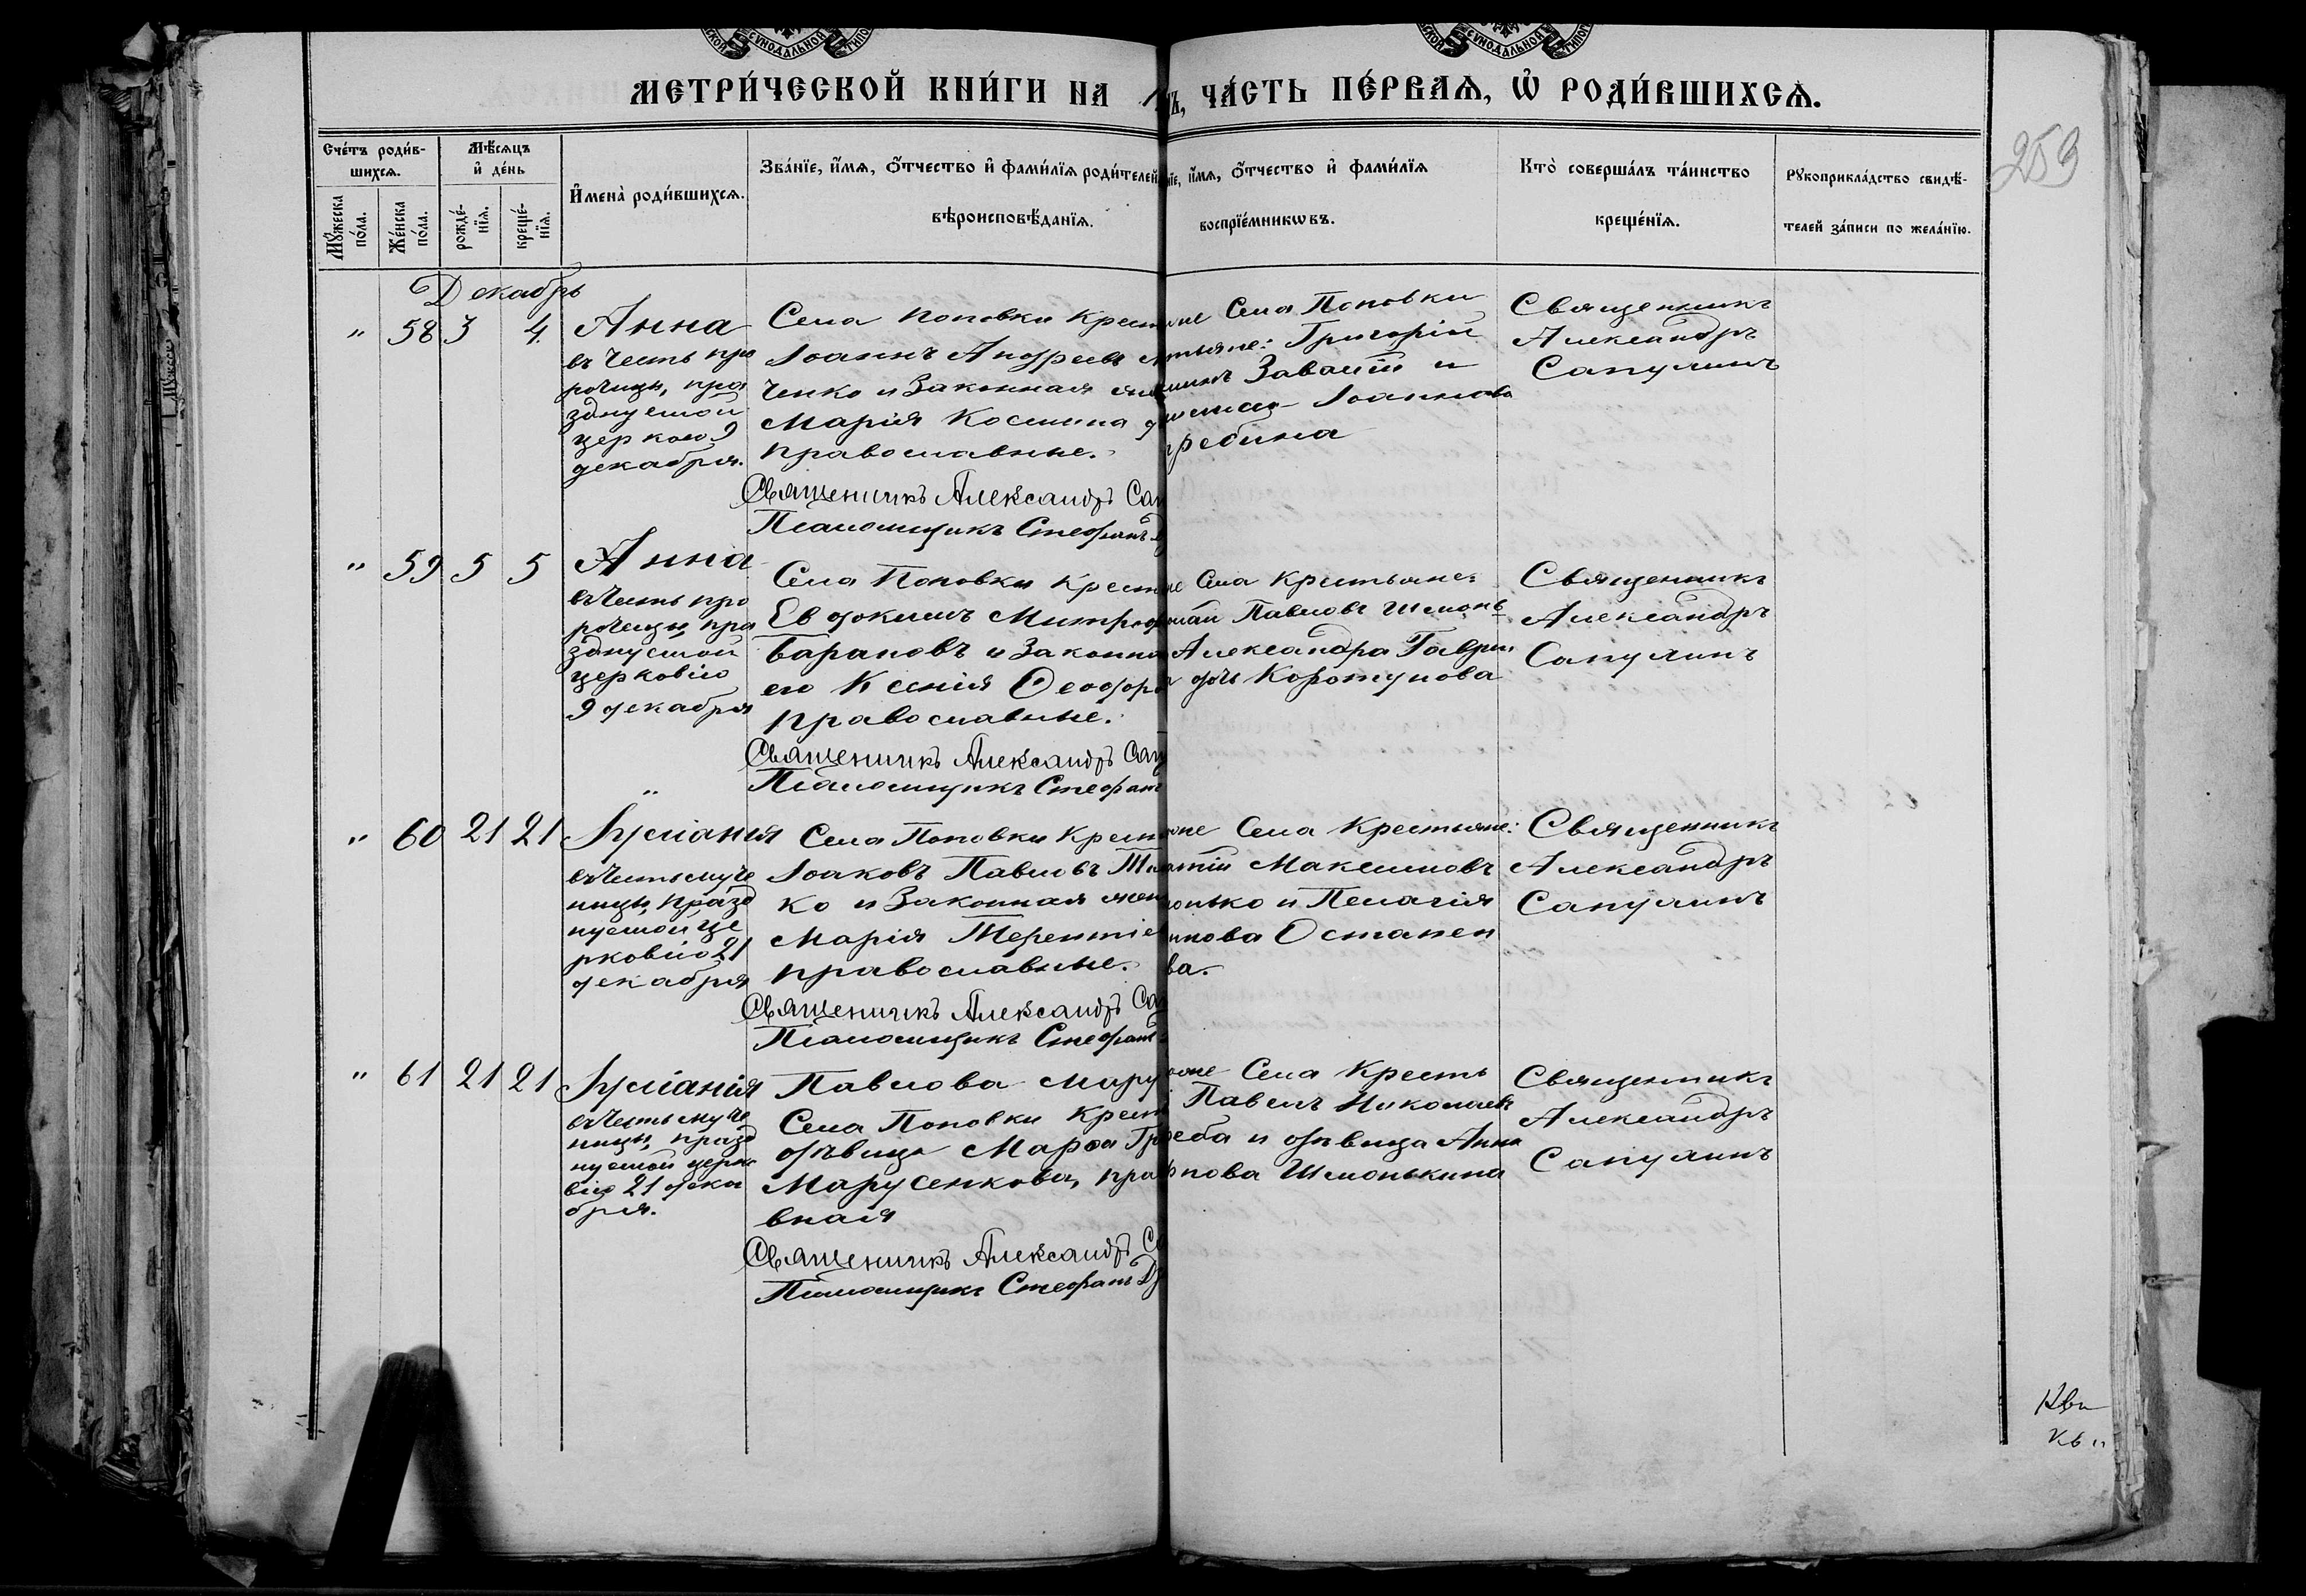 МЕТРИ́ЧЕСКОЙ КНИ́ГИ НА
Ъ, ЧА́СТЬ ПЕ́РВАѦ, Ѡ҆ РОДИ́ВШИХСѦ.
253
Счётъ роди́в-
шихсѧ.
Мѣ́сѧцъ
и҆ де́нь
Мꙋ́жеска
по́ла.
Же́нска
по́ла.
рожде́-
нїѧ.
креще́-
нїѧ.
И҆мена̀ роди́вшихсѧ.
Зва́нїе, и҆́мѧ, ѻ҆́тчество и҆ фами́лїѧ роди́телей
вѣроисповѣ́данїѧ.
їе, и҆́мѧ, ѻ҆́тчество и҆ фами́лїѧ
воспрїе́мникѡвъ.
Кто̀ соверша́лъ та́инство
креще́нїѧ.
Рꙋкоприкла́дство свидѣ́-
телей за́писи по жела́нїю.
Декабрь
" 58 3 4.
Анна
въ честь про
рочицы, пра
зднуемой
церковію 9
декабря.
Села Поповки Крест
Іоаннъ Андреевъ
ченко и Законная
Марія Косьмина
православные.
Священникъ Александръ Сап
Псаломщикъ Стефанъ
Села Поповки
Григорій
Завалій и
Іоаннова
гребина
Священникъ
Александръ
Сапулинъ
" 59 5 5
Анна
въ честь про
рочицы, пра
зднуемой
церковію
9 декабря
Села Поповки Крест
Евдокимъ Митроф
Барановъ и Законна
его Ксенія Ѳеодоро
православные.
Священникъ Александръ Сапу
Псаломщикъ Стефанъ
Села Крестьяне:
Павловъ Шмонь
Александра Гаври
дочь Коротунова
Священникъ
Александръ
Сапулинъ
" 60 21 21
Іуліанія
въ честь муче
ницы, празд
нуемой це
рковію 21
декабря
Села Поповки Крест
Іоаковъ Павловъ
ко и Законная жен
Марія Терентіе
православные.
Священникъ Александръ Сап
Псаломщикъ Стефанъ
Села Крестьяне:
Максимовъ
и Пелагія
Останен
ва.
Священникъ
Александръ
Сапулинъ
" 61 21 21
Іуліанія
въ честь муче
ницы, празд
нуемой церко
вію 21 дека
бря.
Павлова Мару
Села Поповки Крест
дѣвица Марѳа
Марусенкова, пра
вная
Священникъ Александръ Са
Псаломщикъ Стефанъ
Села Кресть
Павелъ Николаевъ
и дѣвица Анна
Шмонькина
Священникъ
Александръ
Сапулинъ